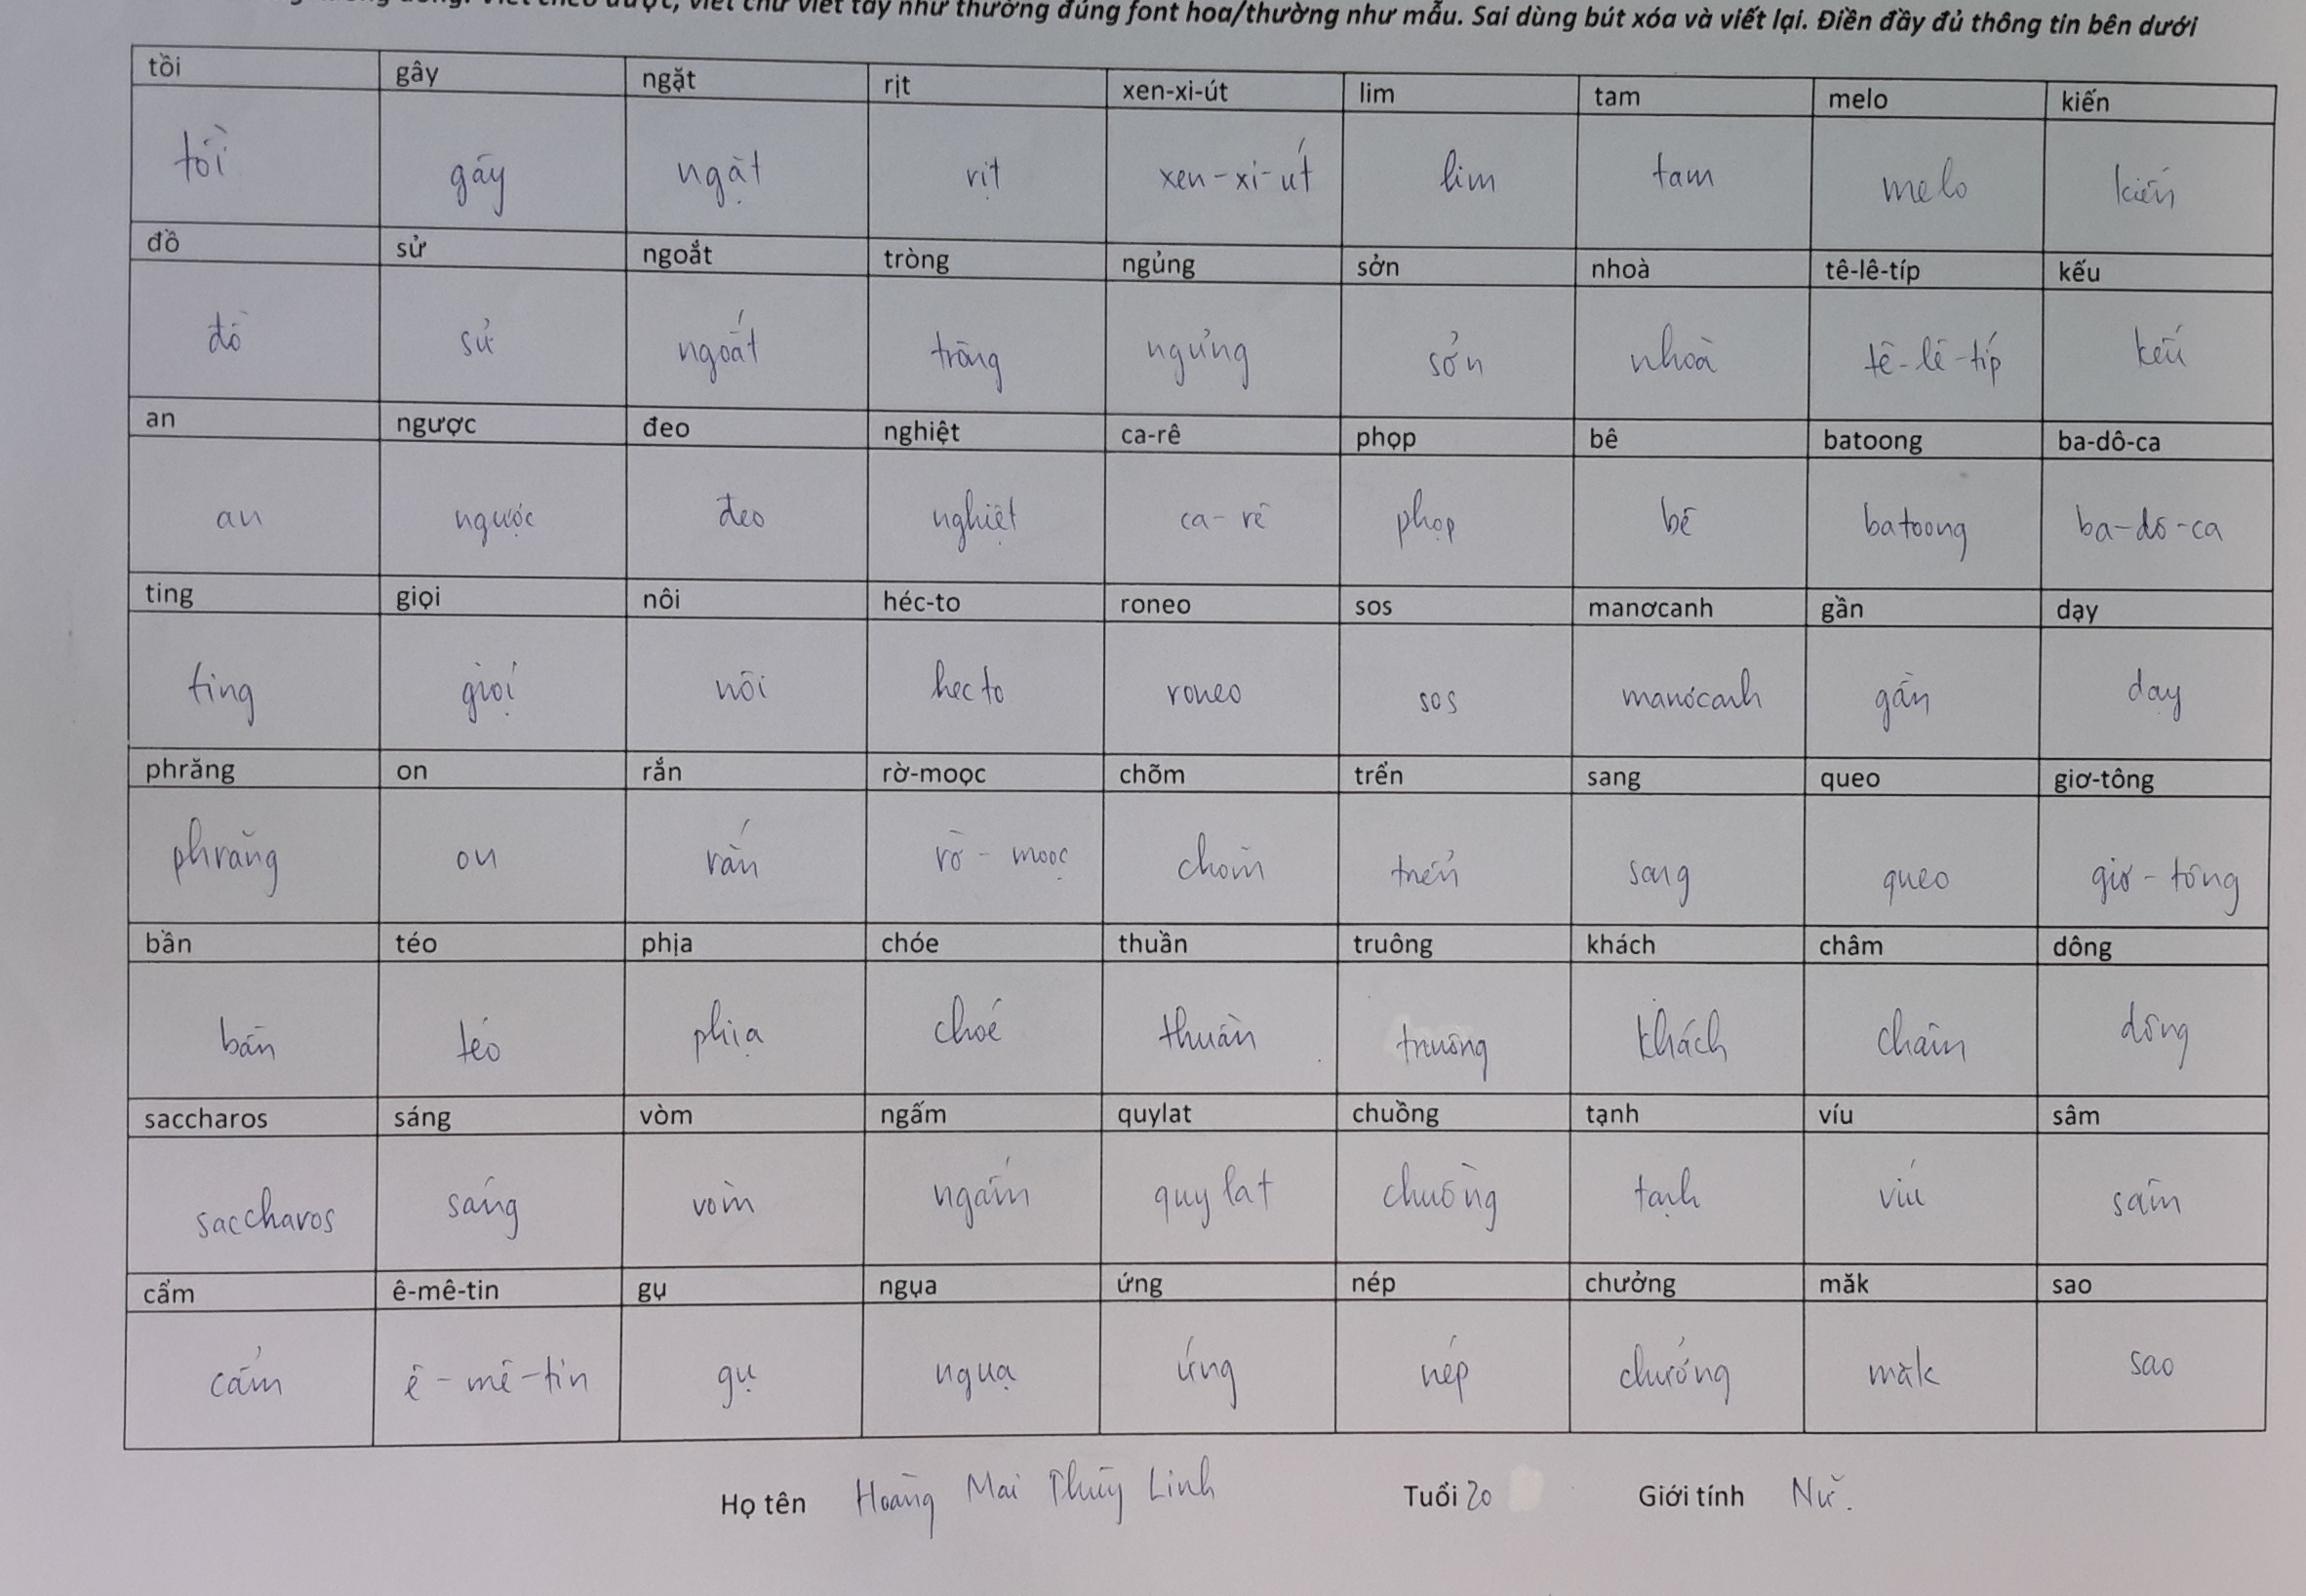 viết chữ viết tay như thường đúng font hoa/thường như mẫu. Sai dùng bút xóa và viết lại. Điền đầy đủ thông tin bên dưới
tồi gây ngặt rịt xen-xi-út lim tam melo kiến
tồi gây ngặt rịt xen-xi-út lim tam melo kiến
đồ sử ngoắt tròng ngủng sởn nhoà tê-lê-típ kếu
đồ sử ngoắt tròng ngủng sởn nhoà tê-lê-típ kếu
an ngược đeo nghiệt ca-rê phọp bê batoong ba-dô-ca
an ngược đeo nghiệt ca-rê phọp bê batoong ba-dô-ca
ting giọi nôi héc-to roneo sos manơcanh gần dạy
ting giọi nôi hec to roneo sos manơcanh gần dạy
phrăng on rắn rờ-moọc chõm trển sang queo giơ-tông
phrăng on rắn rờ - moọc chõm trển sang queo giơ-tông
bần téo phịa chóe thuần truông khách châm dông
bần téo phịa choé thuần truông khách châm dông
saccharos sáng vòm ngấm quylat chuồng tạnh víu sâm
saccharos sáng vòm ngấm quylat chuồng tạnh víu sâm
cẩm ê-mê-tin gụ ngụa ứng nép chưởng măk sao
cẩm ê-mê-tin gụ ngụa ứng nép chưởng măk sao
Họ tên Hoàng Mai Thùy Linh Tuổi 20 Giới tính Nữ.